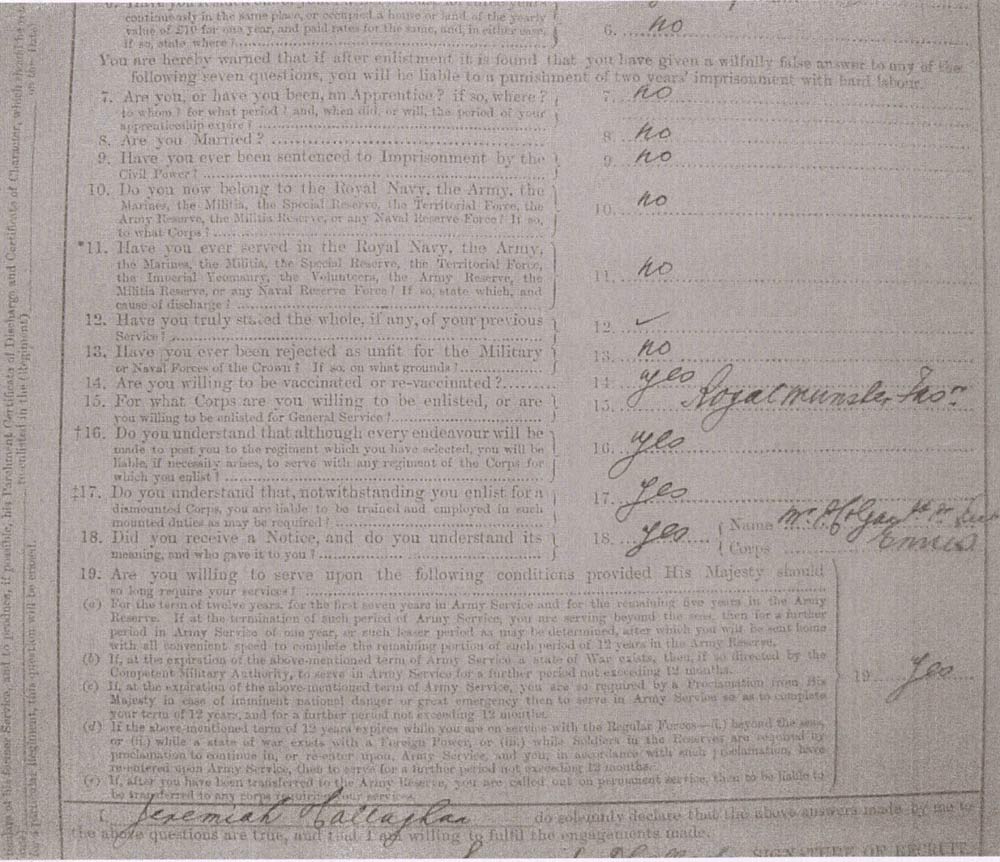 continuously in the same place, or occupied a house or land of the yearly
value of £10 for one year, and paid rates for the same, and, in either case,
if so, state where?
6. no
You are hereby warned that if after enlistment it is found that you have given a wilfully false answer to any of the
following seven questions, you will be liable to a punishment of two years' imprisonment with hard labour.
7. Are you, or have you been, an Apprentice? if so, where?
to whom? for what period? and, when did, or will, the period of your
apprenticeship expire?
7. no
8. Are you Married?
8. no
9. Have you ever been sentenced to Imprisonment by the
Civil Power?
9. no
10. Do you now belong to the Royal Navy, the Army, the
Marines, the Militia, the Special Reserve, the Territorial Force, the
Army Reserve, the Militia Reserve, or any Naval Reserve Force? If so,
to what Corps?
10. no
*11. Have you ever served in the Royal Navy, the Army,
the Marines, the Militia, the Special Reserve, the Territorial Force,
the Imperial Yeomanry, the Volunteers, the Army Reserve, the
Militia Reserve, or any Naval Reserve Force? If so, state which, and
cause of discharge?
11. no
12. Have you truly stated the whole, if any, of your previous
Service?
12. ✓
13. Have you ever been rejected as unfit for the Military
or Naval Forces of the Crown? If so, on what grounds?
13. no
14. Are you willing to be vaccinated or re-vaccinated?
14. yes
15. For what Corps are you willing to be enlisted, or are
you willing to be enlisted for General Service?
15. Royal munster Fusrs
†16. Do you understand that although every endeavour will be
made to post you to the regiment which you have selected, you will be
liable, if necessity arises, to serve with any regiment of the Corps for
which you enlist?
16. yes
‡17. Do you understand that, notwithstanding you enlist for a
dismounted Corps, you are liable to be trained and employed in such
mounted duties as may be required?
17. yes
18. Did you receive a Notice, and do you understand its
meaning, and who gave it to you?
18. yes
Name Mr
Corps Ennis
19. Are you willing to serve upon the following conditions provided His Majesty should
so long require your services?
(a) For the term of twelve years, for the first seven years in Army Service and for the remaining five years in the Army
Reserve. If at the termination of such period of Army Service, you are serving beyond the seas, then for a further
period in Army Service of one year, or such lesser period as may be determined, after which you will be sent home
with all convenient speed to complete the remaining portion of such period of 12 years in the Army Reserve.
(b) If, at the expiration of the above-mentioned term of Army Service a state of War exists, then, if so directed by the
Competent Military Authority, to serve in Army Service for a further period not exceeding 12 months.
(c) If, at the expiration of the above-mentioned term of Army Service, you are so required by a Proclamation from His
Majesty in case of imminent national danger or great emergency then to serve in Army Service so as to complete
your term of 12 years, and for a further period not exceeding 12 months.
(d) If the above-mentioned term of 12 years expires while you are on service with the Regular Forces—(i.) beyond the seas,
or (ii.) while a state of war exists with a Foreign Power, or (iii.) while Soldiers in the Reserves are required by
proclamation to continue in, or re-enter upon, Army Service, and you, in accordance with such proclamation, have
re-entered upon Army Service, then to serve for a further period not exceeding 12 months.
(e) If, after you have been transferred to the Army Reserve, you are called out on permanent service, then to be liable to
be transferred to any corps requiring your services.
19 yes
I, Jeremiah Callaghan do solemnly declare that the above answers made by me to
the above questions are true, and that I am willing to fulfil the engagements made.
SIGNATURE OF RECRUIT
of his former Service, and to produce, if possible, his Parchment Certificate of Discharge and Certificate of Character, which should be
re-enlisted in the (Regiment) on the (Date)
for a particular Regiment, this question will be erased.